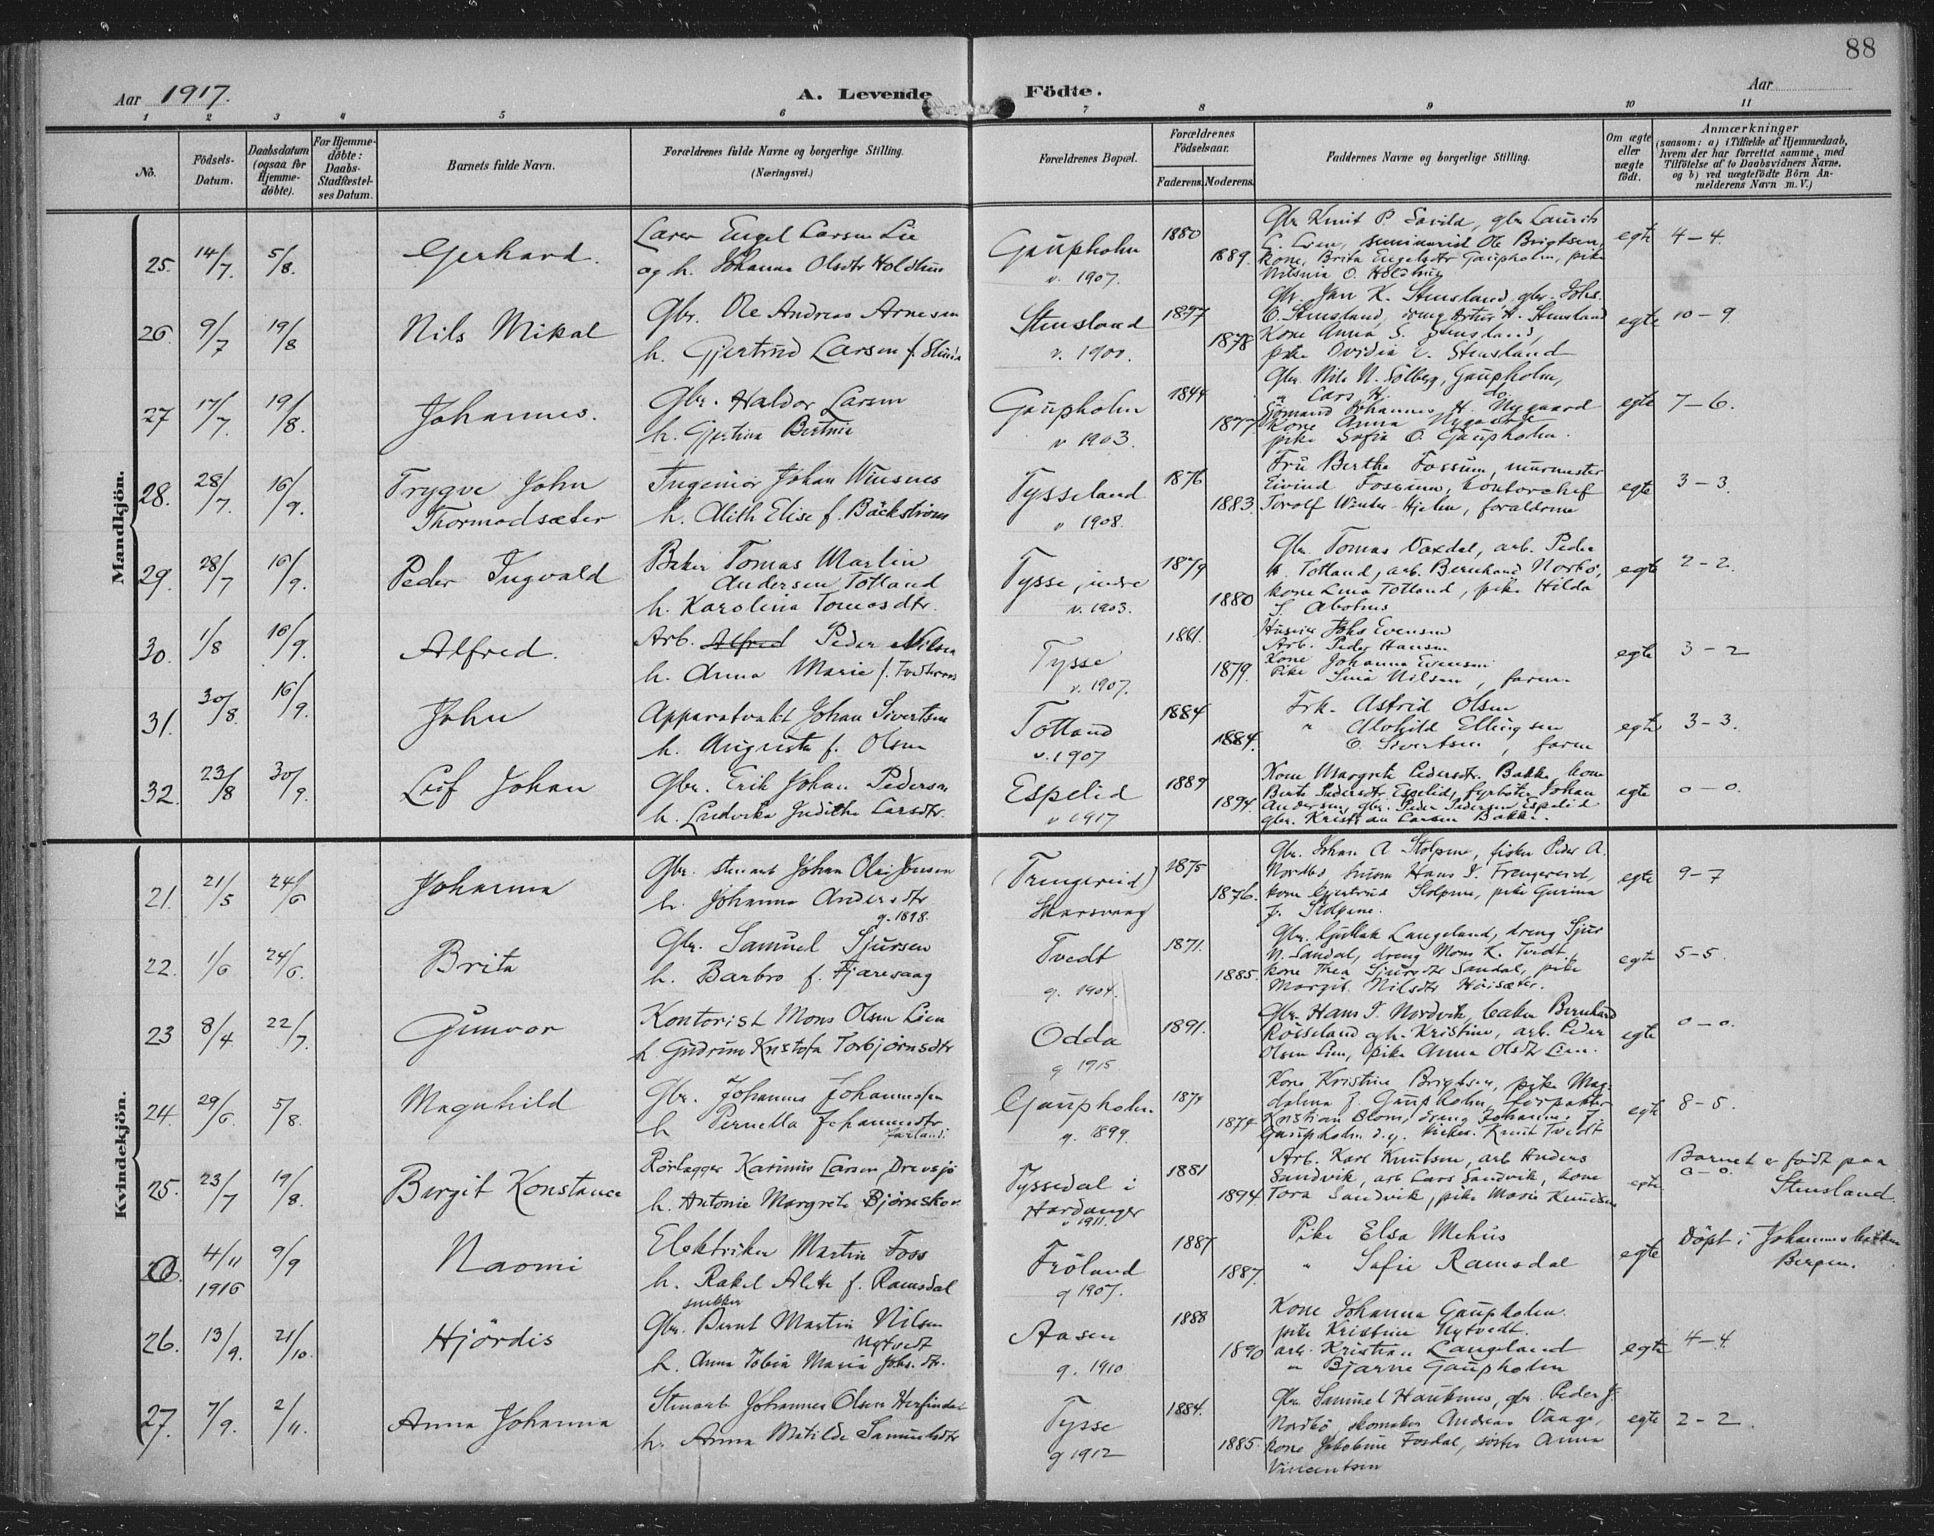 88
Aar 1917.
A. Levende Fødte.
Aar
1 2 3 4 5 6 7 8 9 10 11
No.
Fødsels-Datum.
Daabsdatum (ogsaa for Hjemme-døbte).
For Hjemme-døbte: Daabs-Stadfæstel-ses Datum.
Barnets fulde Navn.
Forældrenes fulde Navne og borgerlige Stilling. (Næringsvei.)
Forældrenes Bopæl.
Forældrenes Fødselsaar.
Faderens. Moderens.
Faddernes Navne og borgerlige Stilling.
Om ægte eller uægte født.
Anmærkninger
(saasom: a) i Tilfælde af Hjemmedaab, hvem der har forrettet samme, med Tilføielse af to Daabsvidners Navne, og b) ved uægtefødte Børn Anmelderens Navn m. V.)
Mandkjøn.
25. 14/7. 5/8. Gerhard.
Engel Larsen Lie
og h. Johanna Olsdtr Holdhus
Gaupholm
v. 1907.
1880
1889.
Gbr Knut P Savild, gbr Laurits
L. Lien, seminarist Ole Brigtsen,
kone, Brita Engelsdtr Gaupholm, pike
Nilsina O. Holdhus
egte 4 – 4.
26. 9/7 19/8 Nils Mikal
Gbr. Ole Andreas Arnesen
h. Gjertrud Larsen f.
Stensland
v. 1900.
1878
Gbr. Jan K. Stensland, gbr. Johs.
O. Stensland, dreng Artur A. Stensland
Kone Anna S. Stensland,
pike Ovidia E. Stensland
egte 10 – 9
27 17/7. 19/8. Johannes.
Gbr. Haldor Larsen
h. Gjertina Bertine
Gaupholm
v 1903.
1844
1877
Gbr. Nils N. Solberg, Gaupholm,
" Lars H. do.
Sömand Johannes H. Nygaard
Kone Anna Nygaard
pike Sofia O. Gaupholm.
egte 7 – 6.
28. 28/7. 16/9. Trygve John
Thormodsæter
Ingeniør Johan Wiusnes
h. Alith Elise f. Bäckström
Tysseland
v 1908.
1876
1883.
Fru Berthe Fossum, murmester
Eivind Fossum, kontorchef
Torolf Winter-Hjelm, forældrene
egte 3 – 3.
29. 28/7 16/9. Peder Ingvald
Baker Tomas Martin
Andersen Totland
h. Karolina Tomasdtr.
Tysse, indre
v. 1903.
1879
1880
Gbr. Tomas Vaxdal, arb. Peder
A. Totland, arb. Bernhard Nordbö,
kone Lina Totland, pike Hilda
egte 2 – 2.
30. 1/8 16/9. Alfred.
Arb. Alfred Peder Nilsen
h. Anna Marie f.
Tysse
v. 1907.
1881.
1879.
Johs Evensen
Arb. Peder Hansen
Kone Johanna Evensen
Pike Sina Nilsen, faren.
egte 3 – 2
31. 30/8. 16/9. John
Apparatvakt Johan Sivertsen
h. Augusta f. Olsen
Totland
v. 1907
1884
1884.
Frk. Astrid Olsen
" Alvhild Ellingsen
O. Sivertsen, faren
egte 3 – 3.
32. 23/8 30/9. Leif Johan
Gbr. Erik Johan Pedersen
h. Ludvika Judithe Larsdtr.
Espelid
v 1917
1889
1894
Kone Margrete Pedersdtr. Bakke, kone
Berta Pedersdtr Espelid, fyrbøter Johan
Andersen, gbr. Peder Pedersen Espelid
gbr. Kristian Larsen Bakke.
egte 0 – 0.
Kvindekjøn.
21. 21/5 24/6 Johanna
Gbr. stenarb Johan Olai Jensen
h. Johanna Andersdtr
g. 1898.
(Trengereid)
Skarsvaag
1875
1876.
Gbr. Johan A Stolpene, fisker Peder A.
Nordbö, Hans I. Trengereid,
kone Gjertrud Stolpene, pike Gurina
J. Stolpene.
egte 9 – 7
22. 1/6 24/6. Brita
Gbr. Samuel Sjursen
h. Barbro f. Fjæresaag
Tvedt
g. 1904.
1871.
1885.
Gbr. Gullak Langeland, dreng Sjur
N. Sandal, dreng Mons K. Tvedt,
kone Thea Sjursdtr Sandal, pike
Margit Nilsdtr Höisæter.
egte 5 – 5.
23 8/4 22/7. Gunvor
Kontorist Mons Olsen Lien
h Gudrun Kristofa Torbjørnsdtr
Odda
g 1915.
1891.
Gbr. Hans I. Nordvik, baker Bernhard
Rösseland og h. Kristine, arb. Peder
Olsen Lien, pike Anna Olsdtr Lien.
egte 0 – 0.
24. 29/6. 5/8. Magnhild
Gbr. Johannes Johannessen
h Pernella Johannesdtr
Gaupholm
g. 1899.
1874
1874
Kone Kristine Brigtsen, pike Mag-
dalena J. Gaupholm, forpakter
Kristian Blom, dreng Johannes J.
Gaupholm d.y. Knut Tvedt
egte 8 – 5.
25. 23/7 19/8. Birgit Konstance
Rørlægger Kasinus Larsen Drevsjø
h. Antonie Margrete Bjørnskor
Tyssedal i
Hardanger
v 1911.
1881
1894
Arb. Karl Knutsen, arb Anders
Sandvik, arb Lars Sandvik, kone
Tora Sandvik, pike Marie Knudsen
egte
0 – 0.
Barnet er født paa
Stensland.
4/11 1916 9/9 Naomi
Elektriker Martin Foss
h. Rakel Alette f. Ramsdal
Fröland
g 1907.
1887
1887.
Pike Elsa Mehus
" Sofie Ramsdal
egte
Döpt i Johanneskirken
Bergen.
26. 13/9. 21/10. Hjördis
snekker
Gbr. Bernt Martin Nilsen
Nytvedt
h. Anna Tobia Maria Johs. dtr.
Aasen
g. 1910.
1888
1890
Kone Johanna Gaupholm.
pike Kristine Nytvedt.
arb. Kristian Langeland
" Bjarne Gaupholm
egte 4 – 4.
27. 7/9. 2/11. Anna Johanna
Stenarb Johannes Olsen Herfindal
h. Anna Matilde Samuelsdtr
Tysse
g 1912
1884.
1885.
Gbr Samuel Hauknes, gbr. Peder J.
Nordbö skomaker Andreas Vaage,
kone Jakobine Fosdal, søster Anna
Vincentsen
egte 2 – 2